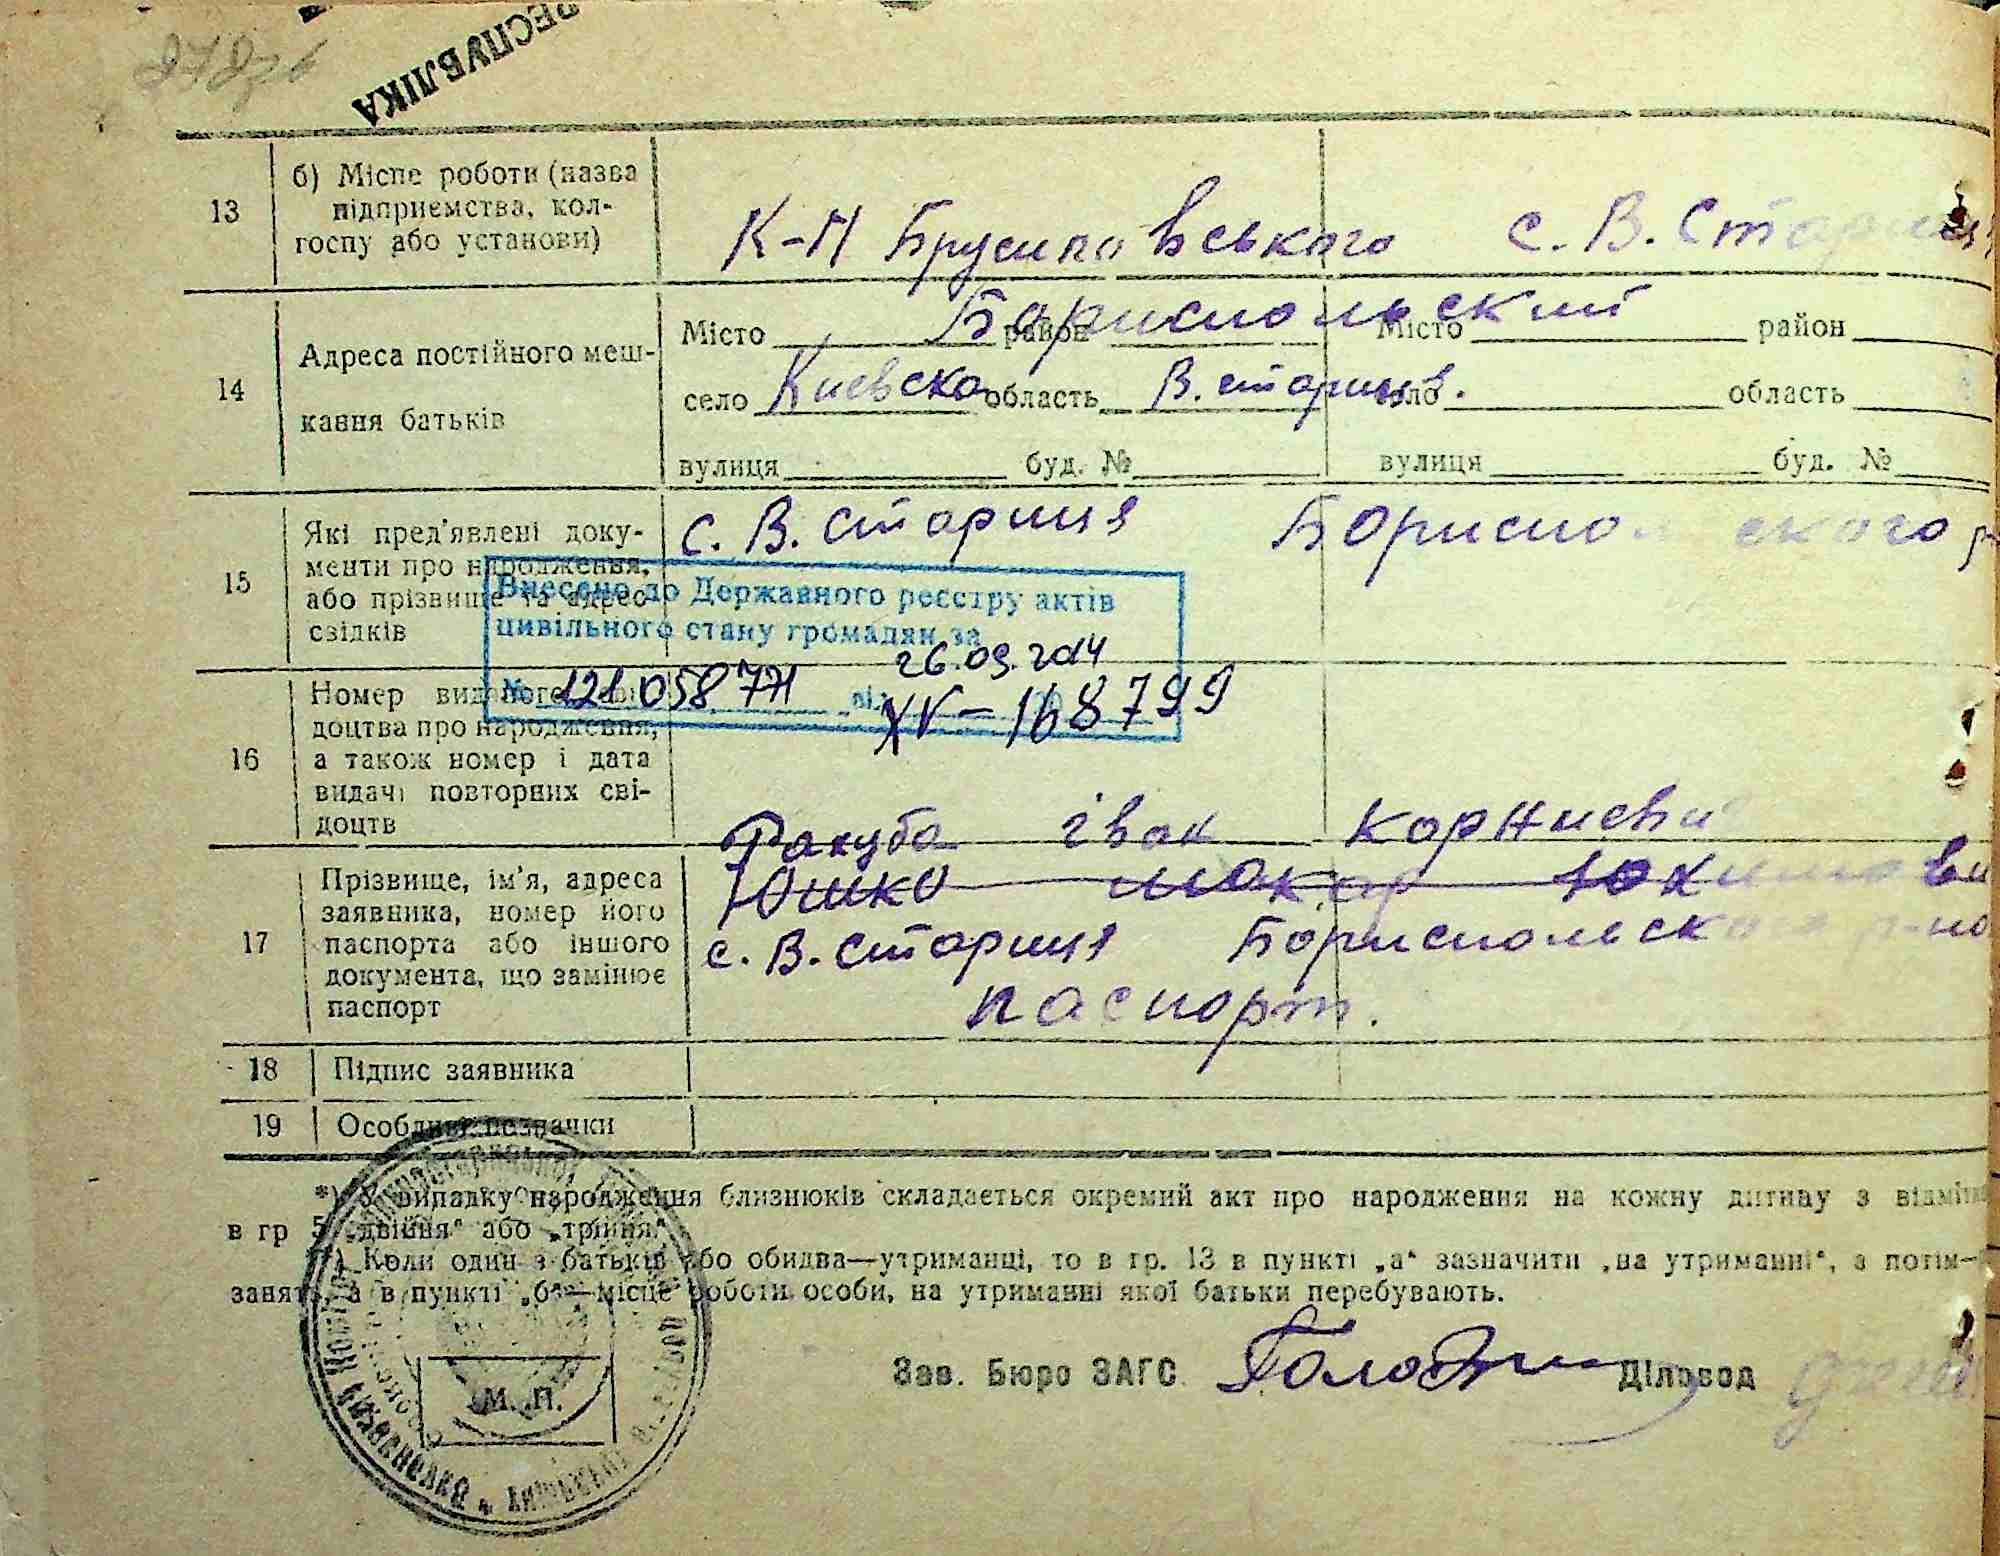 РЕСПУБЛІКА
13 б) Місце роботи (назва підприємства, колгоспу або установи)
К-П с. В. Стариця
14 Адреса постійного мешкання батьків
Місто район Місто район
Бориспольский
село область село область
Киевска В. стариця.
вулиця буд. № вулиця буд. №
15 Які пред'явлені документи про народження, або прізвище та адрес свідків
с. В. стариця Борисполského р-
Внесено до Державного реєстру актів
цивільного стану громадян за
26.09.2014
№ 121058 771 від
XV-168799
16 Номер виданого свідоцтва про народження, а також номер і дата видачі повторних свідоцтв
17 Прізвище, ім'я, адреса заявника, номер його паспорта або іншого документа, що замінює паспорт
Ракуба Іван Корниеви
Юшко Макар
с. В. стариця Бориспольского р-но
паспорт.
18 Підпис заявника
19 Особливі позначки
*) У випадку народження близнюків складається окремий акт про народження на кожну дитину з відмітк
в гр 5 „двійня“ або „трійня“
**) Коли один з батьків або обидва—утриманці, то в гр. 13 в пункті „а“ зазначити „на утриманні“, з
занять, а в пункті „б“—місце роботи особи, на утриманні якої батьки перебувають.
Зав. Бюро ЗАГС Діловод
М. П.